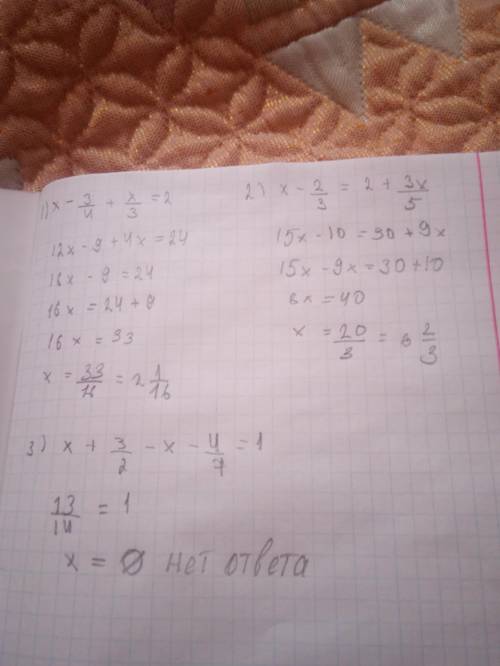 1) x - 3/4 + x/3 = 2
12x - 9 + 4x = 24
16x - 9 = 24
16x = 24 + 9
16x = 33
x = 33/16 = 2 1/16
2) x - 2/3 = 2 + 3x/5
15x - 10 = 30 + 9x
15x - 9x = 30 + 10
6x = 40
x = 20/3 = 6 2/3
3) x + 3/2 - x - 4/7 = 1
13/14 = 1
x = ∅ нет ответа